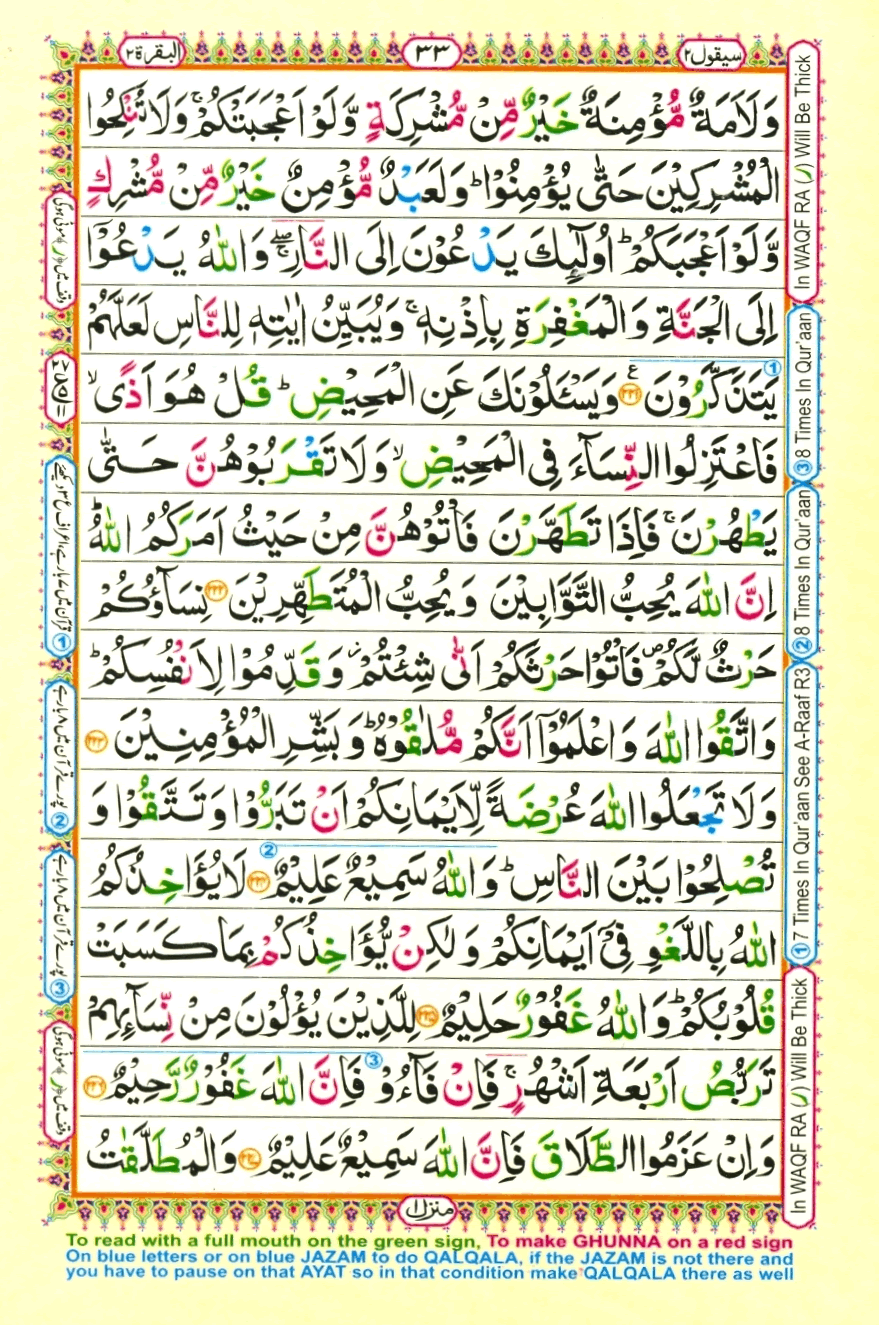 سيقول ٢
٣٣
البقرة ٢
وَلَاَمَةٌ مُّؤْمِنَةٌ خَيْرٌ مِّنْ مُّشْرِكَةٍ وَّلَوْ اَعْجَبَتْكُمْ ۚ وَلَا تُنْكِحُوا
الْمُشْرِكِيْنَ حَتّٰى يُؤْمِنُوْا ؕ وَلَعَبْدٌ مُّؤْمِنٌ خَيْرٌ مِّنْ مُّشْرِكٍ
وَّلَوْ اَعْجَبَكُمْ ؕ اُولٰٓئِكَ يَدْعُوْنَ اِلَى النَّارِ ۖۚ وَاللّٰهُ يَدْعُوْٓا
اِلَى الْجَنَّةِ وَالْمَغْفِرَةِ بِاِذْنِهٖ ۚ وَيُبَيِّنُ اٰيٰتِهٖ لِلنَّاسِ لَعَلَّهُمْ
يَتَذَكَّرُوْنَ ﴿٢٢١﴾ ع وَيَسْـَٔلُوْنَكَ عَنِ الْمَحِيْضِ ؕ قُلْ هُوَ اَذًى ۙ
فَاعْتَزِلُوا النِّسَآءَ فِى الْمَحِيْضِ ۙ وَلَا تَقْرَبُوْهُنَّ حَتّٰى
يَطْهُرْنَ ۚ فَاِذَا تَطَهَّرْنَ فَاْتُوْهُنَّ مِنْ حَيْثُ اَمَرَكُمُ اللّٰهُ ؕ
اِنَّ اللّٰهَ يُحِبُّ التَّوَّابِيْنَ وَيُحِبُّ الْمُتَطَهِّرِيْنَ ﴿٢٢٢﴾ نِسَآؤُكُمْ
حَرْثٌ لَّكُمْ ۪ فَاْتُوْا حَرْثَكُمْ اَنّٰى شِئْتُمْ ۫ وَقَدِّمُوْا لِاَنْفُسِكُمْ ؕ
وَاتَّقُوا اللّٰهَ وَاعْلَمُوْٓا اَنَّكُمْ مُّلٰقُوْهُ ؕ وَبَشِّرِ الْمُؤْمِنِيْنَ ﴿٢٢٣﴾
وَلَا تَجْعَلُوا اللّٰهَ عُرْضَةً لِّاَيْمَانِكُمْ اَنْ تَبَرُّوْا وَتَتَّقُوْا وَ
تُصْلِحُوْا بَيْنَ النَّاسِ ؕ وَاللّٰهُ سَمِيْعٌ عَلِيْمٌ ﴿٢٢٤﴾ لَا يُؤَاخِذُكُمُ
اللّٰهُ بِاللَّغْوِ فِىْٓ اَيْمَانِكُمْ وَلٰكِنْ يُّؤَاخِذُكُمْ بِمَا كَسَبَتْ
قُلُوْبُكُمْ ؕ وَاللّٰهُ غَفُوْرٌ حَلِيْمٌ ﴿٢٢٥﴾ لِلَّذِيْنَ يُؤْلُوْنَ مِنْ نِّسَآئِهِمْ
تَرَبُّصُ اَرْبَعَةِ اَشْهُرٍ ۚ فَاِنْ فَآءُوْ فَاِنَّ اللّٰهَ غَفُوْرٌ رَّحِيْمٌ ﴿٢٢٦﴾
وَاِنْ عَزَمُوا الطَّلَاقَ فَاِنَّ اللّٰهَ سَمِيْعٌ عَلِيْمٌ ﴿٢٢٧﴾ وَالْمُطَلَّقٰتُ
منزل ١
In WAQF RA (ر) Will Be Thick
③ 8 Times In Qur'aan
② 8 Times In Qur'aan
① 7 Times In Qur'aan See A-Raaf R3
In WAQF RA (ر) Will Be Thick
To read with a full mouth on the green sign, To make GHUNNA on a red sign
On blue letters or on blue JAZAM to do QALQALA, if the JAZAM is not there and
you have to pause on that AYAT so in that condition make QALQALA there as well